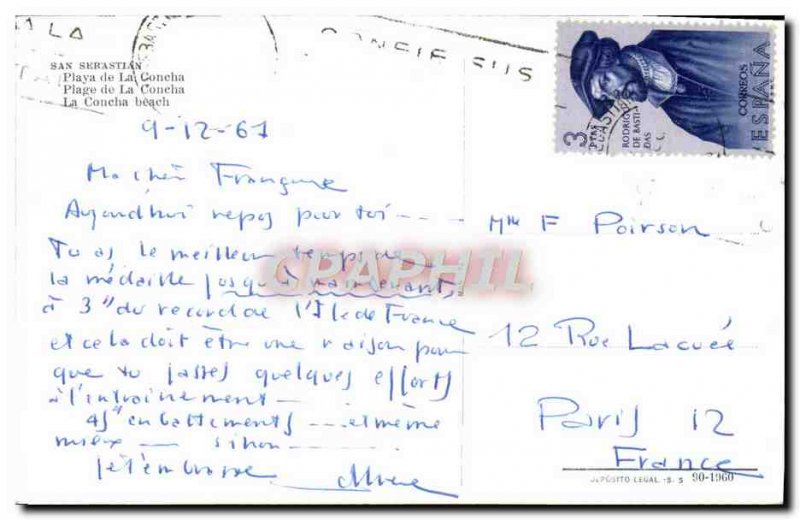 SAN SEBASTIAN
Playa de La Concha
Plage de La Concha
La Concha beach
9-12-61
Ma chère Françoise
Aujourd'hui repos pour toi ---
Tu as le meilleur temps de
la médaille jusqu'à maintenant,
à 3" du record de l'Ile de France
et cela doit être une raison pour
que tu fasses quelques efforts
à l'intrainement -
45" en battements --- et même
mieux - sinon ---
je t'embrasse
Mlle F Poirson
12 Rue Lacuée
Paris 12
France
DEPÓSITO LEGAL -S. S 90-1960
3 PTAS
RODRIGO
DE BASTI
DAS
CORREOS
ESPAÑA
CPAPHIL